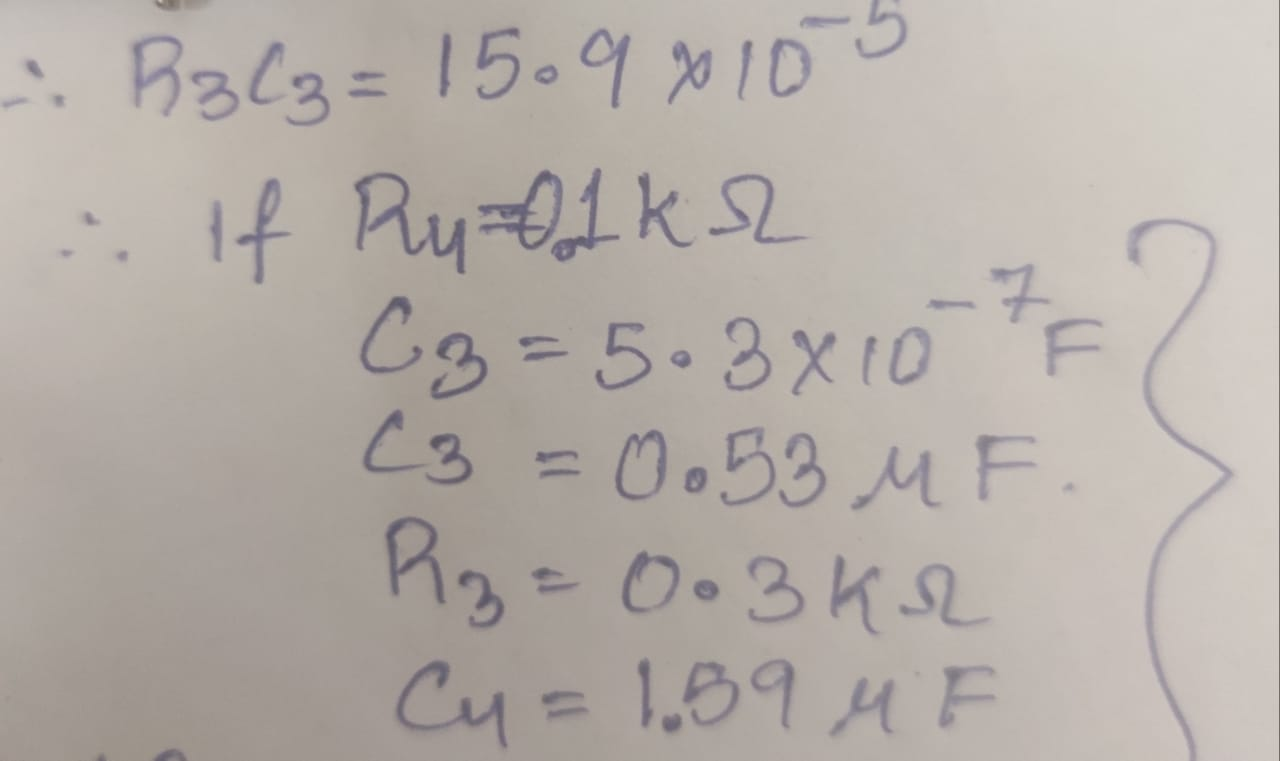 ∴ R₃C₃ = 15.9 × 10⁻⁵
∴ If R₄ = 0.1 k Ω
C₃ = 5.3 × 10⁻⁷ F
C₃ = 0.53 μ F.
R₃ = 0.3 k Ω
C₄ = 1.59 μ F